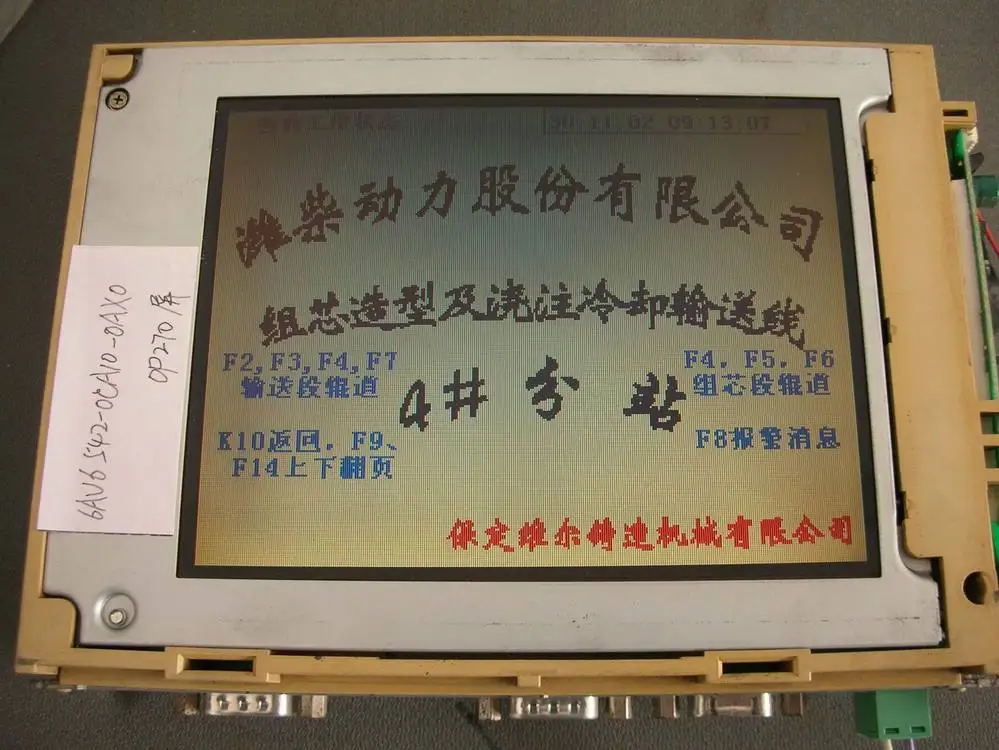 当前工作状态
90.11.02 09:13:07
潍柴动力股份有限公司
组芯造型及浇注冷却输送线
F2,F3,F4,F7
输送段辊道
F4. F5. F6
组芯段辊道
4# 分 站
K10返回. F9、
F14上下翻页
F8报警消息
保定维尔铸造机械有限公司
6AV6 542-0CA10-0AX0
OP270屏